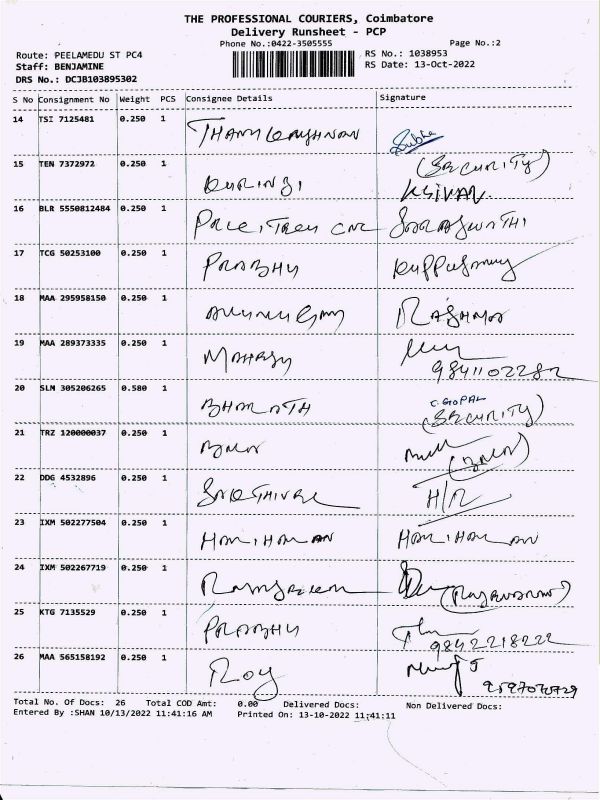 THE PROFESSIONAL COURIERS, Coimbatore
Delivery Runsheet - PCP
Phone No.:0422-3505555 Page No.:2
Route: PEELAMEDU ST PC4 RS No.: 1038953
Staff: BENJAMINE RS Date: 13-Oct-2022
DRS No.: DCJB103895302
S No Consignment No Weight PCS Consignee Details Signature
14 TSI 7125481 0.250 1
15 TEN 7372972 0.250 1 KURINJI (SECURITY) KSIVAN
16 BLR 5550812484 0.250 1 SARASWATHI
17 TCG 50253100 0.250 1 PRABHU Kuppusamy
18 MAA 295958150 0.250 1
19 MAA 289373335 0.250 1 MAHESH 9841102282
20 SLN 305206265 0.580 1 BHARATH C. GOPAL (SECURITY)
21 TRZ 120000037 0.250 1
22 DDG 4532896 0.250 1 SAKTHIVEL H/R
23 IXM 502277504 0.250 1 HARIHARAN HARIHARAN
24 IXM 502267719 0.250 1
25 KTG 7135529 0.250 1 PRABHU 9842218222
26 MAA 565158192 0.250 1 ROY
Total No. Of Docs: 26 Total COD Amt: 0.00 Delivered Docs: Non Delivered Docs:
Entered By :SHAN 10/13/2022 11:41:16 AM Printed On: 13-10-2022 11:41:11